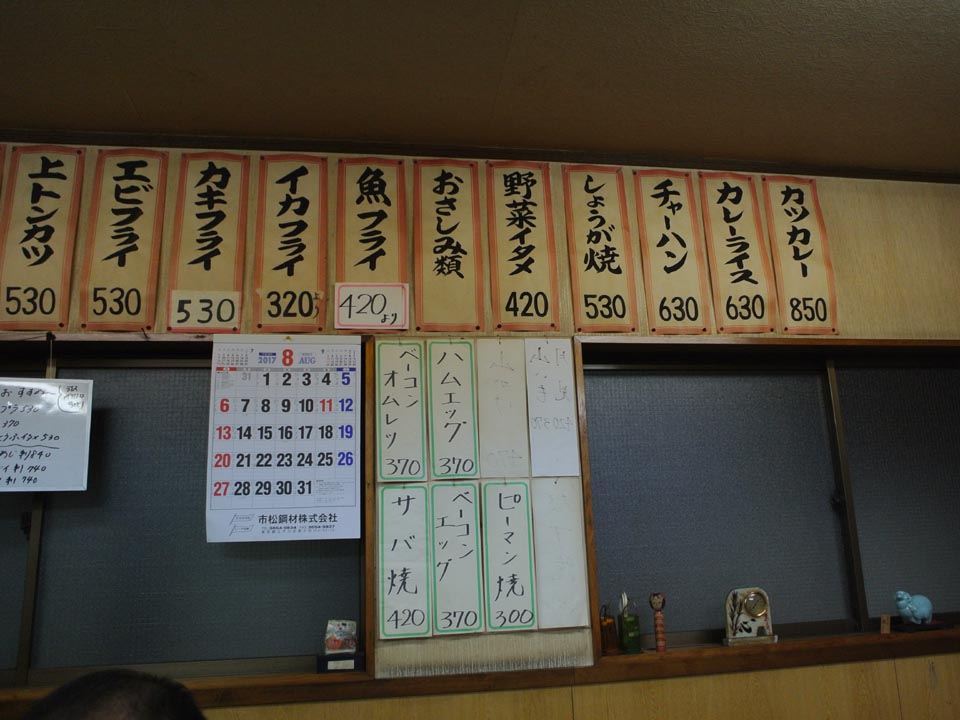 上トンカツ
530
エビフライ
530
カキフライ
530
イカフライ
320より
魚フライ
420より
おさしみ類
野菜イタメ
420
しょうが焼
530
チャーハン
630
カレーライス
630
カツカレー
850
おすすめ
530
370
530
¥1840
¥1740
740
2017 8 AUG
31 1 2 3 4 5
6 7 8 9 10 11 12
13 14 15 16 17 18 19
20 21 22 23 24 25 26
27 28 29 30 31
市松鋼材株式会社
ベーコンオムレツ
370
ハムエッグ
370
サバ焼
420
ベーコンエッグ
370
ピーマン焼
300